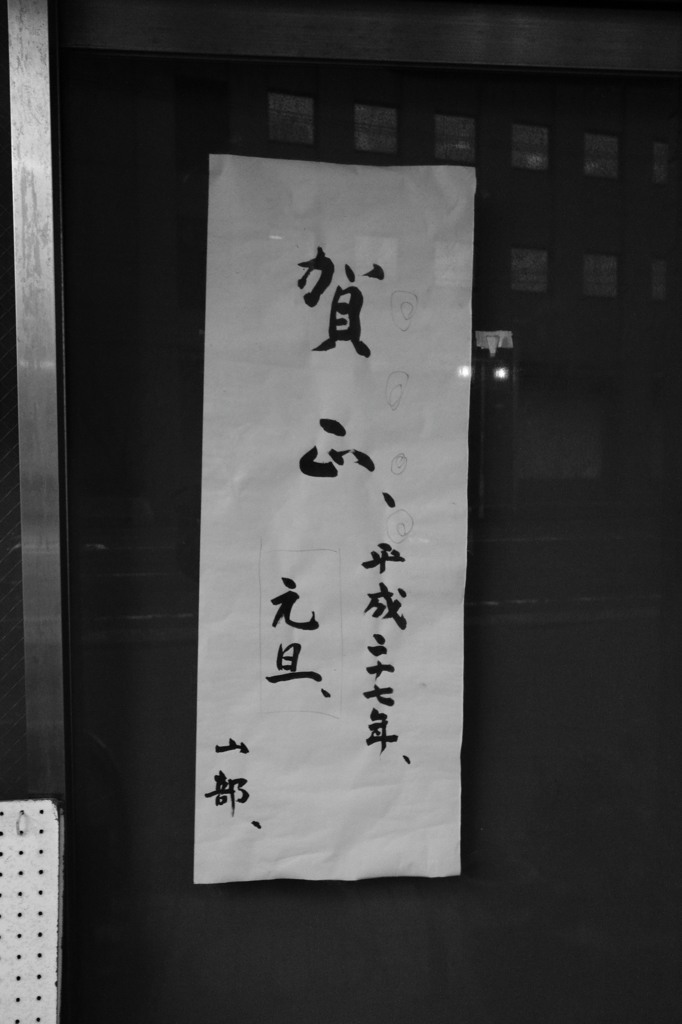 賀正、
平成二十七年、
元旦、
山部、